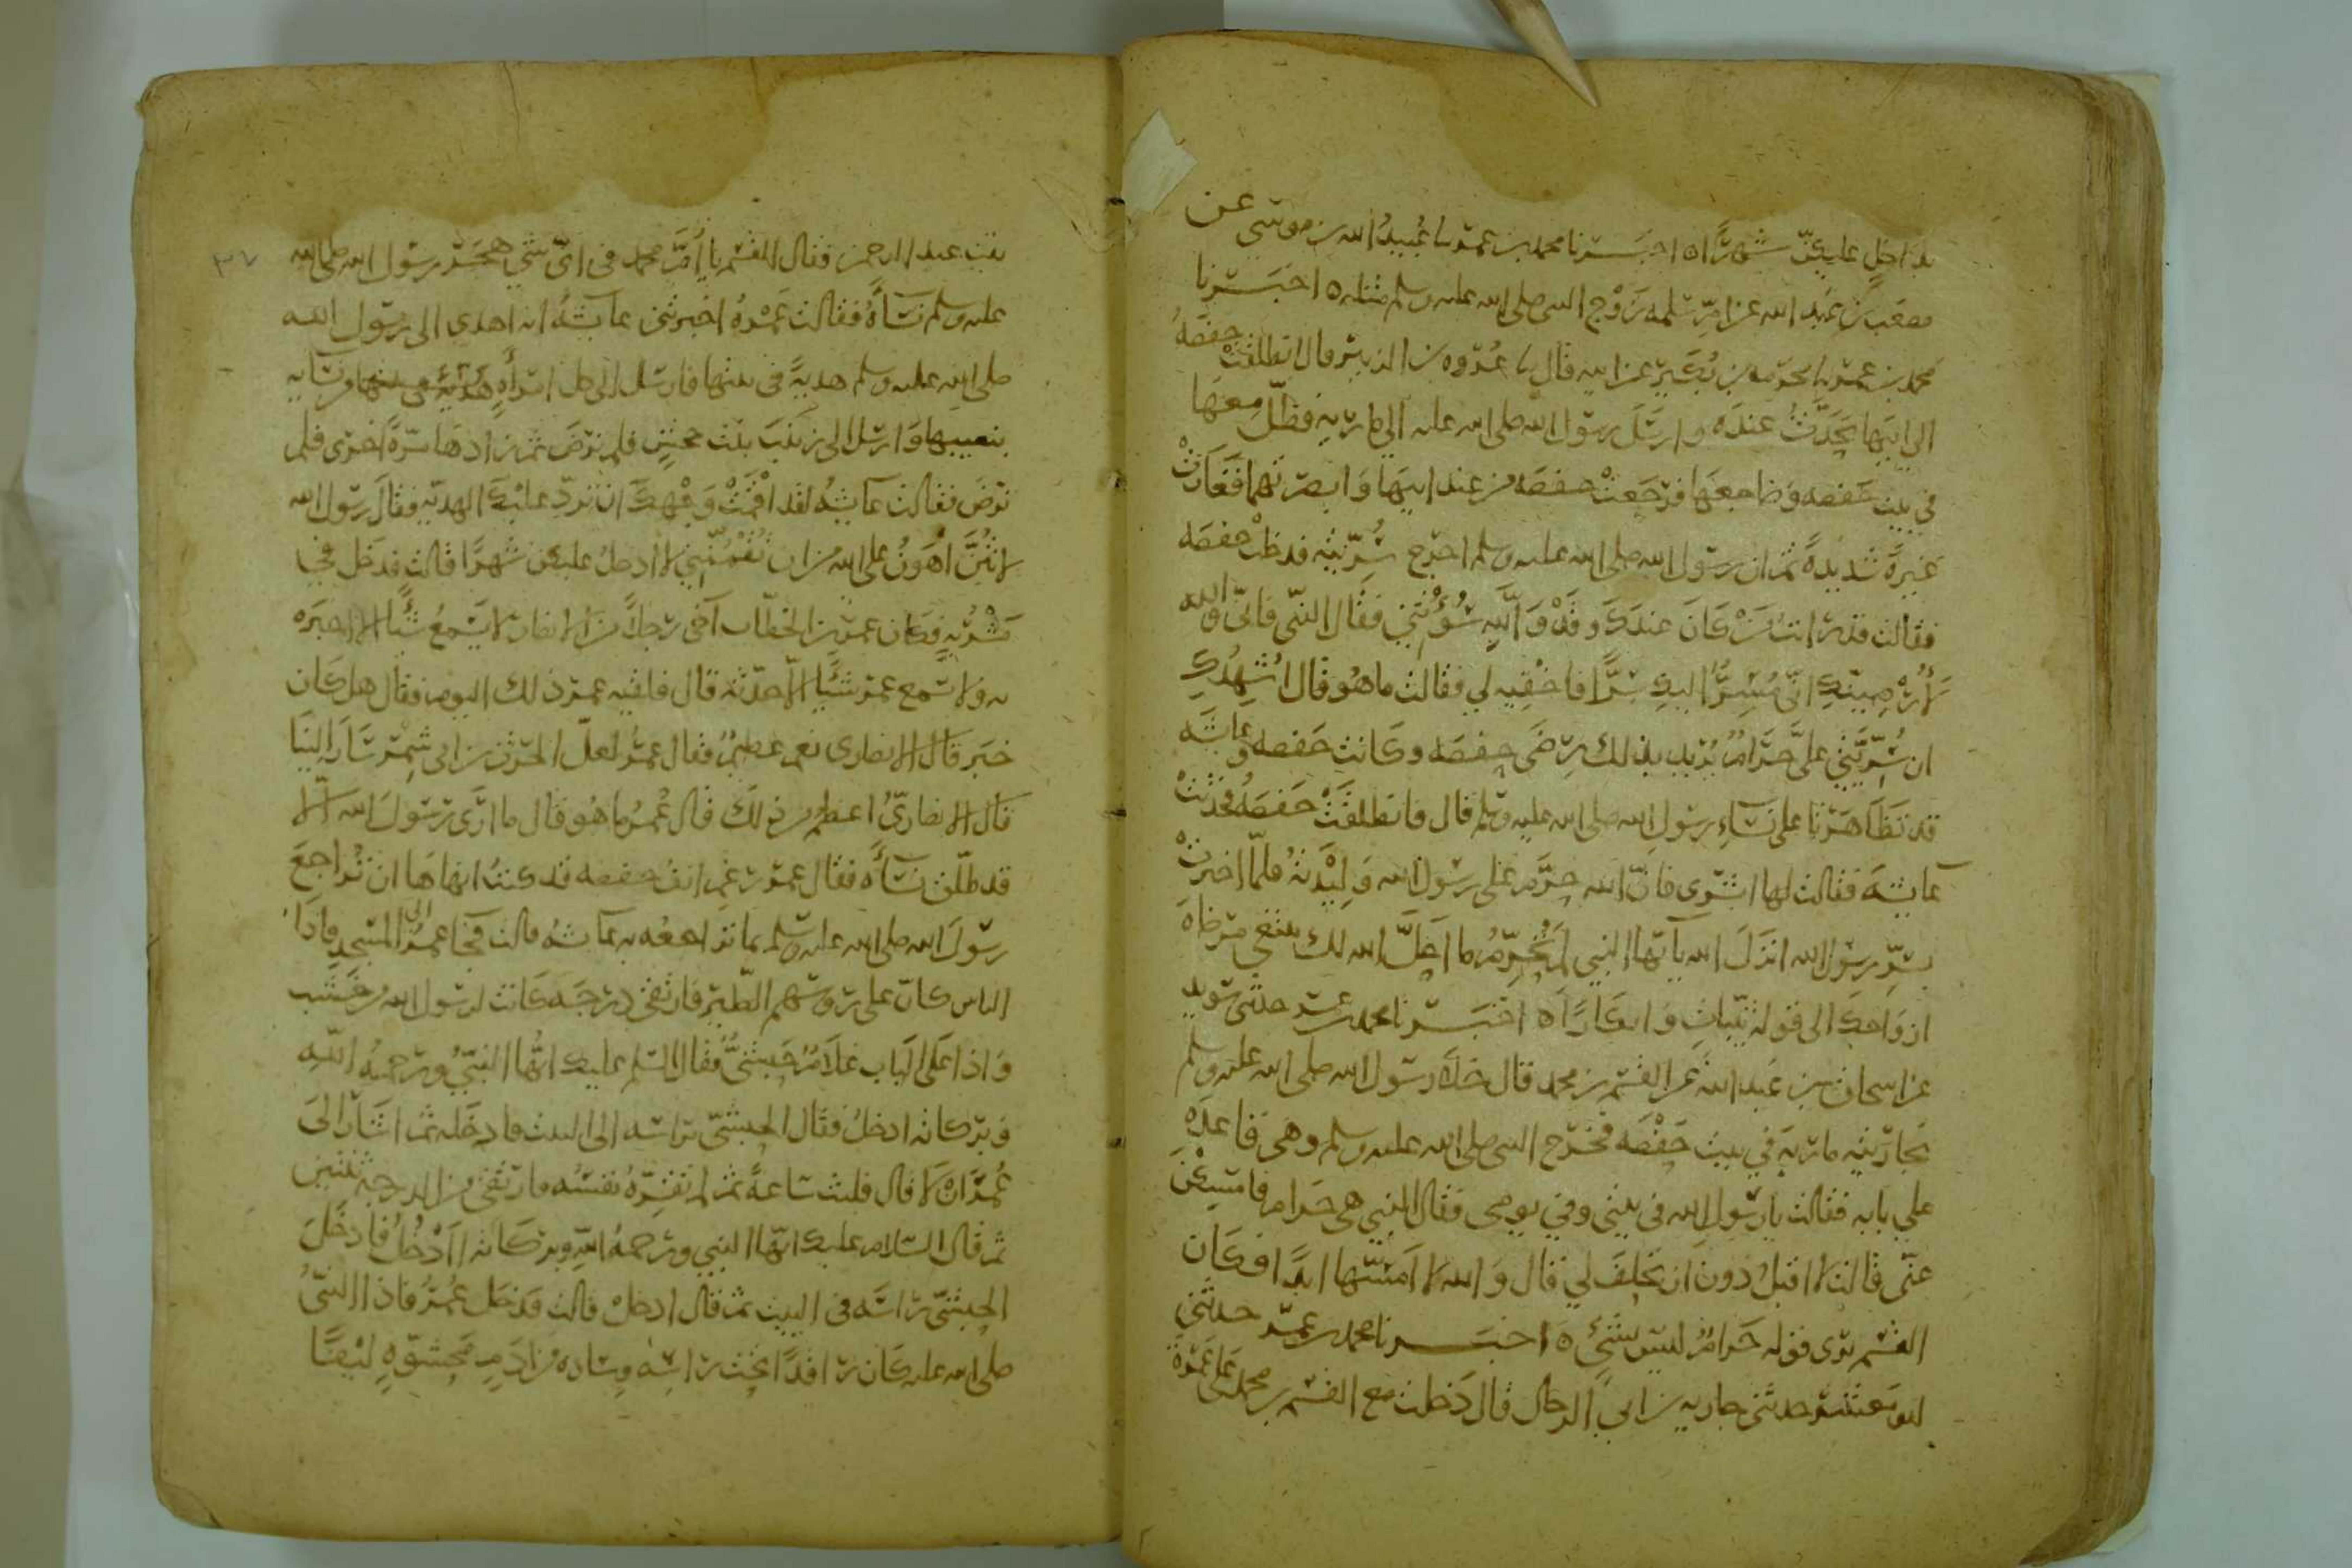 بداخل عليكن شهرا ٥ اخبرنا محمد بن عمر نا عبيد الله بن موسى عن
مصعب بن عبد الله عن ام سلمه زوج النبى صلى الله عليه وسلم مثله ٥ اخبرنا
محمد بن عمر نا مخرمه بن بكير عن ابيه قال نا عروه بن الزبير قال انطلقت حفصه
الى ابيها تحدث عنده وارسل رسول الله صلى الله عليه الى ماريه فظل معها
في بيت حفصه وضاجعها فرجعت حفصه من عند ابيها وابصرتهما فغارت
غيرة شديدة ثم ان رسول الله صلى الله عليه وسلم اخرج سريته فدخلت حفصه
فقالت قد رايت من كان عندك وقد والله سؤتني فقال النبى فانى والله
لأرضينك انى مسر اليك سرا فاخفيه لي فقالت ما هو قال اشهدك
ان سريتي على حرام يريد بذلك رضى حفصه وكانت حفصه وعايشه
قد تظاهرتا على نساء رسول الله صلى الله عليه وسلم قال فانطلقت حفصه فحدثت
عايشه فقالت لها ابشرى فان الله حرم على رسول الله وليدته فلما اخبرت
بسر رسول الله انزل الله يآيها النبي لم تحرم ما احل الله لك تبتغي مرضاة
ازواجك الى قوله ثيبات وابكارا ٥ اخبرنا محمد بن عمر حدثنى سويد
عن اسحاق بن عبد الله عن القسم بن محمد قال خلا رسول الله صلى الله عليه وسلم
بجاريته ماريه في بيت حفصه فخرج النبى صلى الله عليه وسلم وهى قاعده
علي بابه فقالت يا رسول الله فى بيتى وفي يومى فقال النبي هى حرام فامسكى
عنى قالت لا اقبل دون ان تحلف لي قال والله لا امسها ابدا فكان
القسم يرى قوله حرام ليس بشئ ٥ اخبرنا محمد بن عمر حدثني
ابو معشر حدثنى جاريه بن ابي الرجال قال دخلت مع القسم بن محمد على عمرة
بنت عبد الرحمن فقال القسم يا ام محمد فى اى شي هجر رسول الله صلى الله
عليه وسلم نسآه فقالت عمرة اخبرتنى عايشه انه اهدى الى رسول الله
صلى الله عليه وسلم هدية فى بيتها فارسل الى كل امراه هدية من نسايه
بنصيبها وارسل الى زينب بنت جحش فلم ترض ثم زادها مرة اخرى فلم
ترض فقالت عايشه لقد اقمت وجهك ان ترد عليك الهديه فقال رسول الله
لانتن اهون على الله من ان تقمئنني لا ادخل عليكن شهرا قالت فدخل في
مشربه وكان عمر بن الخطاب آخى رجلا من الانصار لا يسمع شئا الا اخبره
به ولا يسمع عمر شئا الا حدثه قال فلقيه عمر ذلك اليوم فقال هل كان
خبر قال الانصارى نعم عظيم فقال عمر لعل الحرث بن ابى شمر سار الينا
قال الانصارى اعظم من ذلك قال عمر ما هو قال ما ارى رسول الله الا
قد طلق نسآه فقال عمر رغم انف حفصه قد كنت انهاها ان تراجع
رسول الله صلى الله عليه وسلم بما تراجعه به عايشه قالت فجا عمر الى المسجد فاذا
الناس كان على روسهم الطير فارتقى درجه كانت لرسول الله من خشب
واذا على الباب غلام حبشى فقال السلم عليك ايها النبى ورحمه الله
وبركاته ادخل فقال الحبشى براسه الى البيت فادخله ثم اشار الى
عمر ان لا قال فلبث ساعة ثم لم تقره نفسه فارتقى من الدرجه ثنتين
ثم قال السلام عليك ايها النبي ورحمه الله وبركاته اادخل فادخل
الحبشى راسه فى البيت ثم قال ادخل قالت فدخل عمر فاذا النبى
صلى الله عليه كان راقدا تحت راسه وساده من ادم محشوه ليفا
٣٧